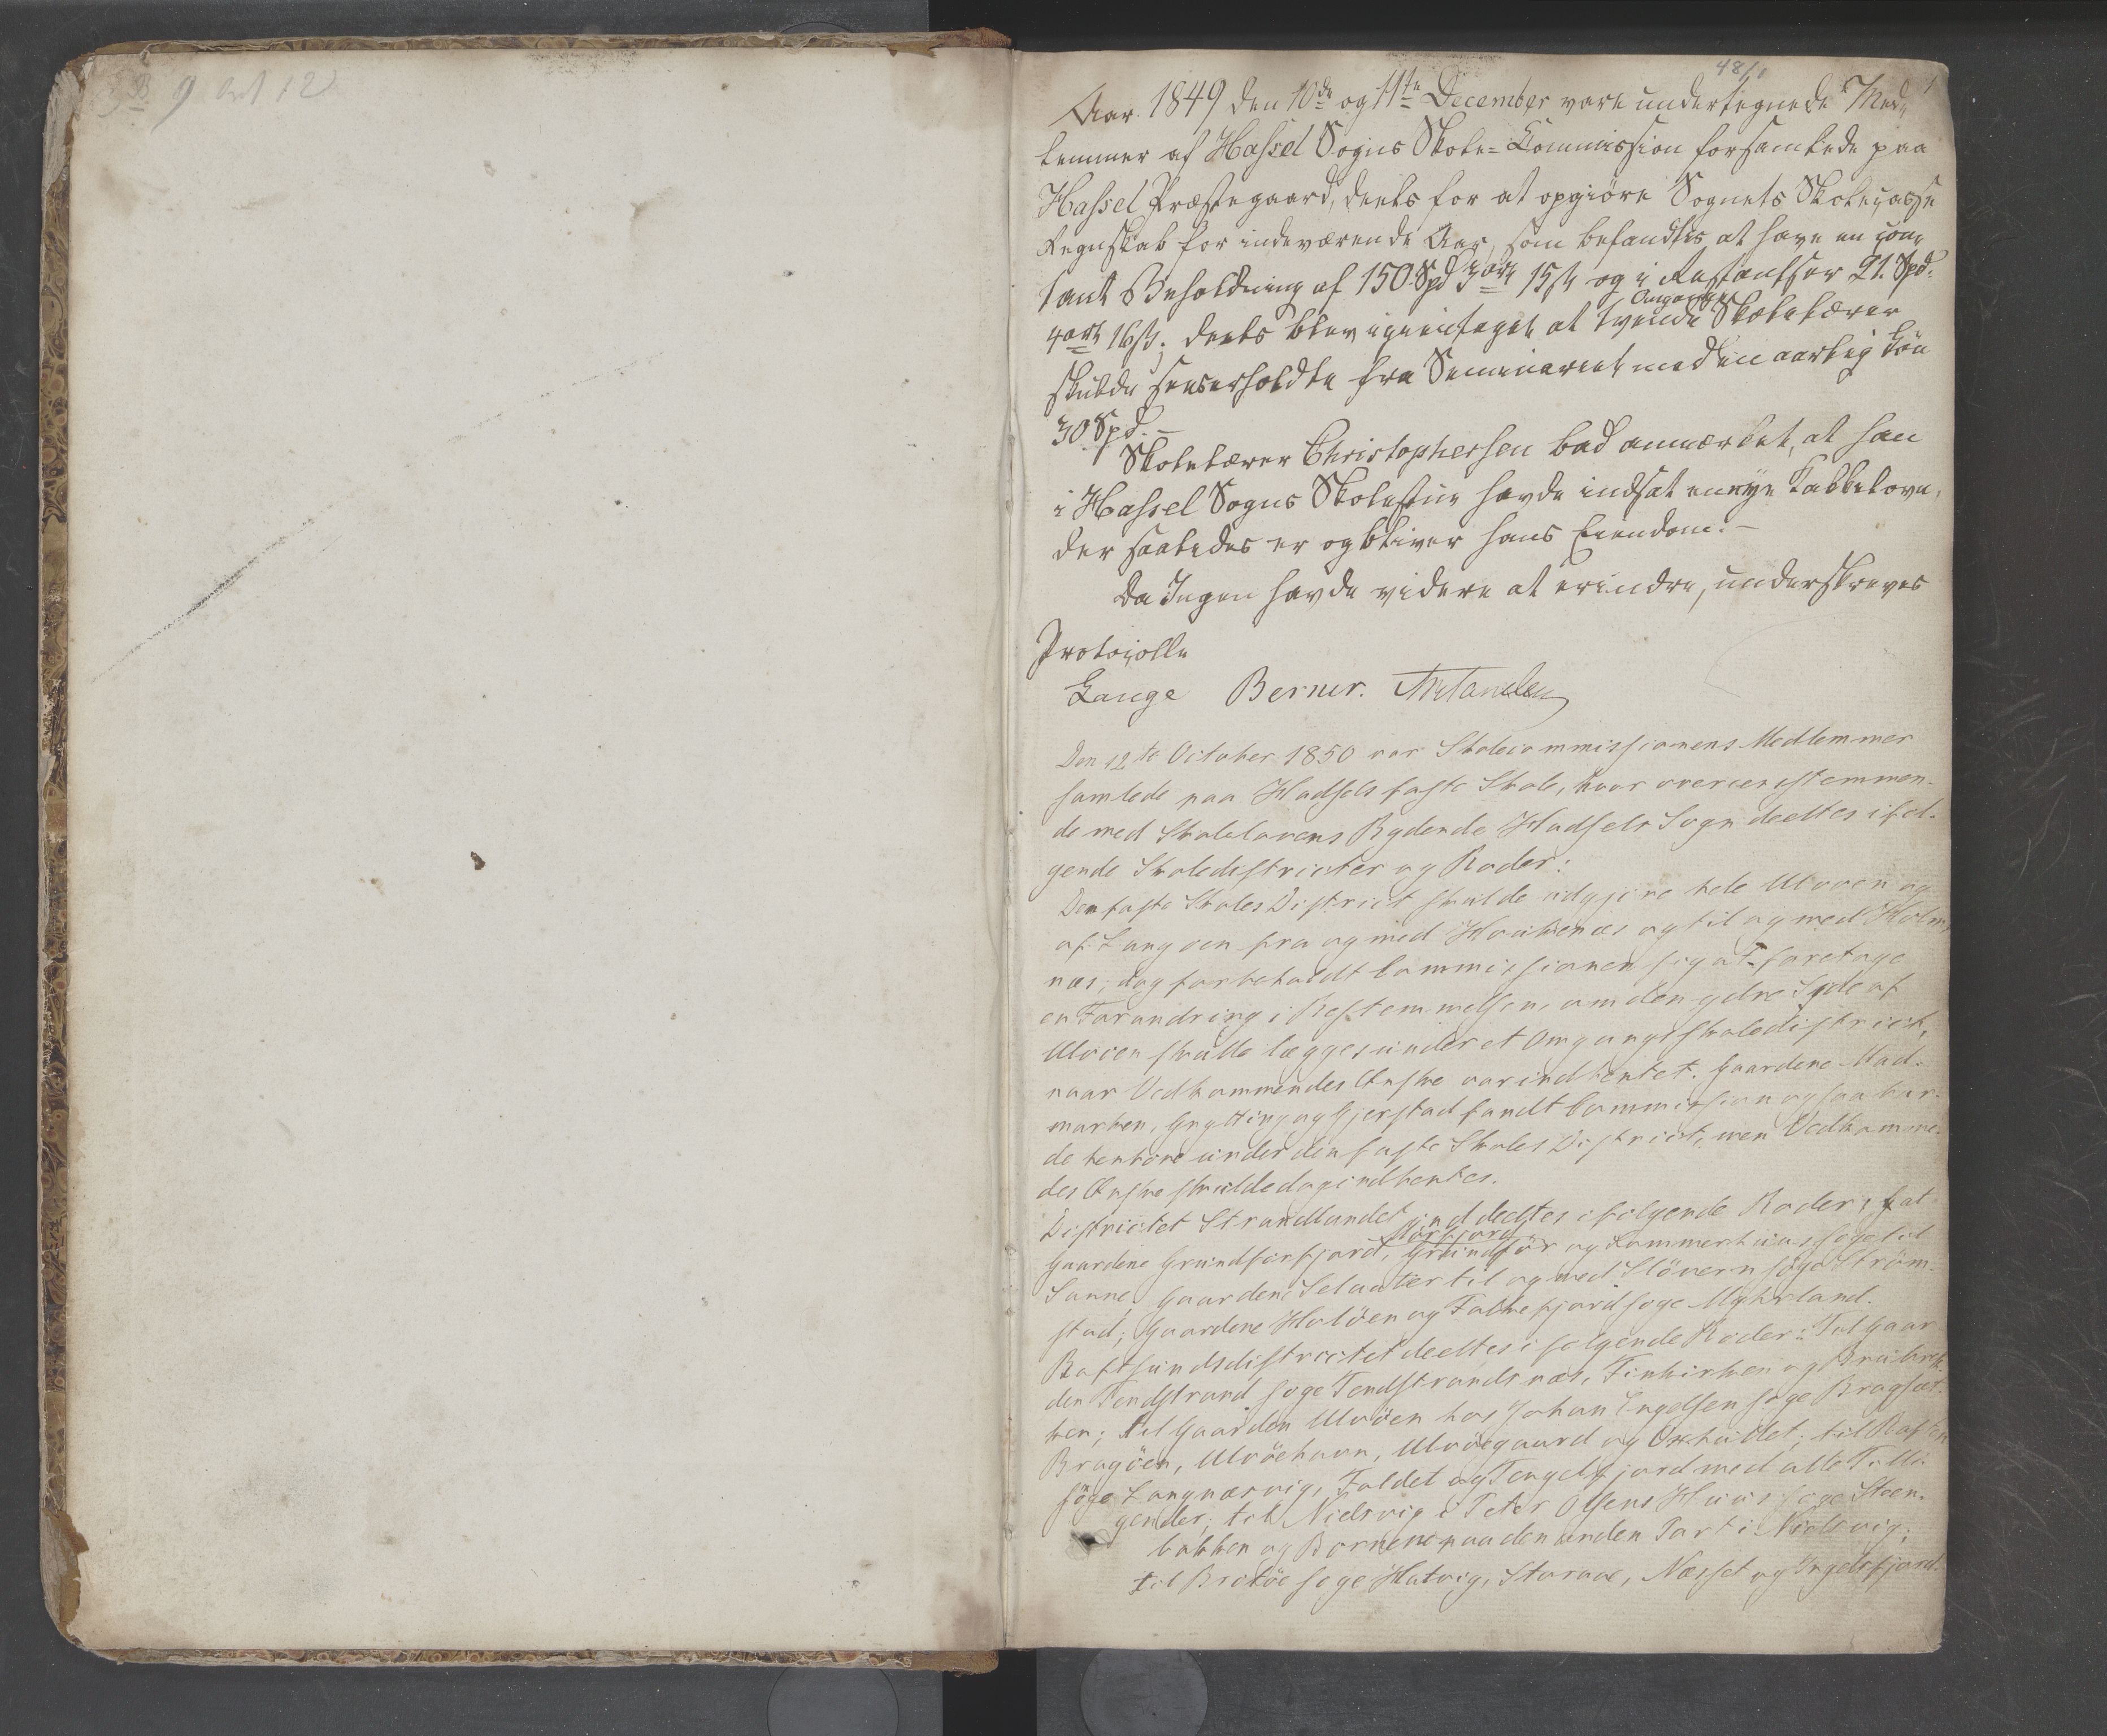 48/1
1
Aar 1849 den 10de og 11te December vare undertegnede Med-
lemmer af Hassel Sogns Skole-Commission forsamlede paa
Hassel Præstegaard, deels for at opgiøre Sognets Skolecasse
Regnskab for indeværende Aar, som befandtes at have en con-
tant Beholdning af 150 Spd 3 ort 15 ß og i Restantser 21 Spd.
4 ort 16 ß; deels blev igientaget at tvende Omgangs Skolelærer
skulde forserholdte fra Seminariet med en aarlig Løn
30 Spd. –
Skolelærer Christophersen bad anmærket, at han
i Hassel Sogns Skolestue havde indsat en nye Kakkelovn,
der saaledes er og bliver hans Eiendom. –
Da Ingen havde videre at erindre, underskreves
Protocolle
Lange Berner.
Den 12te October 1850 var Skolecommissionens Medlemmer
samlede paa Hadsels faste Skole, hvor overeensstemmen-
de med Skolelovens Bydende Hadsels Sogn deeltes i føl-
gende Skoledistricter og Roder:
Den faste Skoles District skulde udgjøre hele Ulvøen og
af Langøen fra og med Haukenæs og til og med Holm-
næs; dog forbeholdt Commissionen sig at foretage
en Forandring i Bestemmelsen, om den ydre Side af
Ulvøen skulle lægges under et Omgangsskoledistrict,
naar Vedkommendes Ønske var indhentet. Gaardene Mad-
marken, Grytting og Gjerstad fandt Commissionen ogsaa bur-
de henhøre under den faste Skoles District, men Vedkomme-
des Ønske skulde dog indhentes.
Districtet Strandlandet inddeeltes i følgende Roder: fat
Gaardene Grundforfjord, Morfjord Grundfør og Sommerhuus søge til
Sanne, Gaardene Selaater til og med Sløveren søge Strøm-
stad; Gaardene Holøen og Falkefjord søge Myhrland.
Raftsundsdistrictet deeltes i følgende Roder: Til Gaar
den Tendstrand søge Tendstrandsnæs, Finkirken og Brubræk-
ken; til Gaarden Ulvøen hos Johan Engelsen søge Brogsæt-
Brogøen, Ulvøehavn, Ulvøegaard og Oxhullet; til Raften
søge Langnæsvig, Faldet og Tengelfjord med alle Tilli-
gender; til Nielsvig i Peter Olsens Huus søge Steen-
bakken og Børnene paa den anden Part i Nielsvig;
til Brotøe søge Hatvig, Storaae, Næsset og Ingelsfjord.